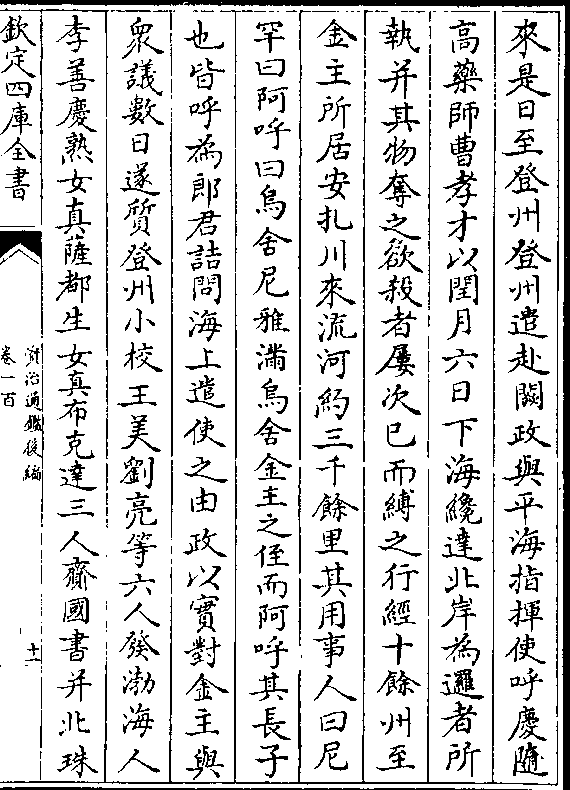 來是日至登州登州遣赴闕政與平海指揮使呼慶隨
高藥師曹孝才以閏月六日下海纔達北岸為邏者所
執并其物奪之欲殺者屢次已而縛之行經十餘州至
金主所居安扎川來流河約三千餘里其用事人曰尼
罕曰阿呼曰烏舍尼雅滿烏舍金主之侄而阿呼其長子
也皆呼為郎君詰問海上遣使之由政以實對金主與
衆議數日遂質登州小校王美劉亮等六人發渤海人
李善慶熟女真薩都生女真布克達三人齎國書并北珠
欽定四庫全書
資治通鑑後編
卷一百
十一